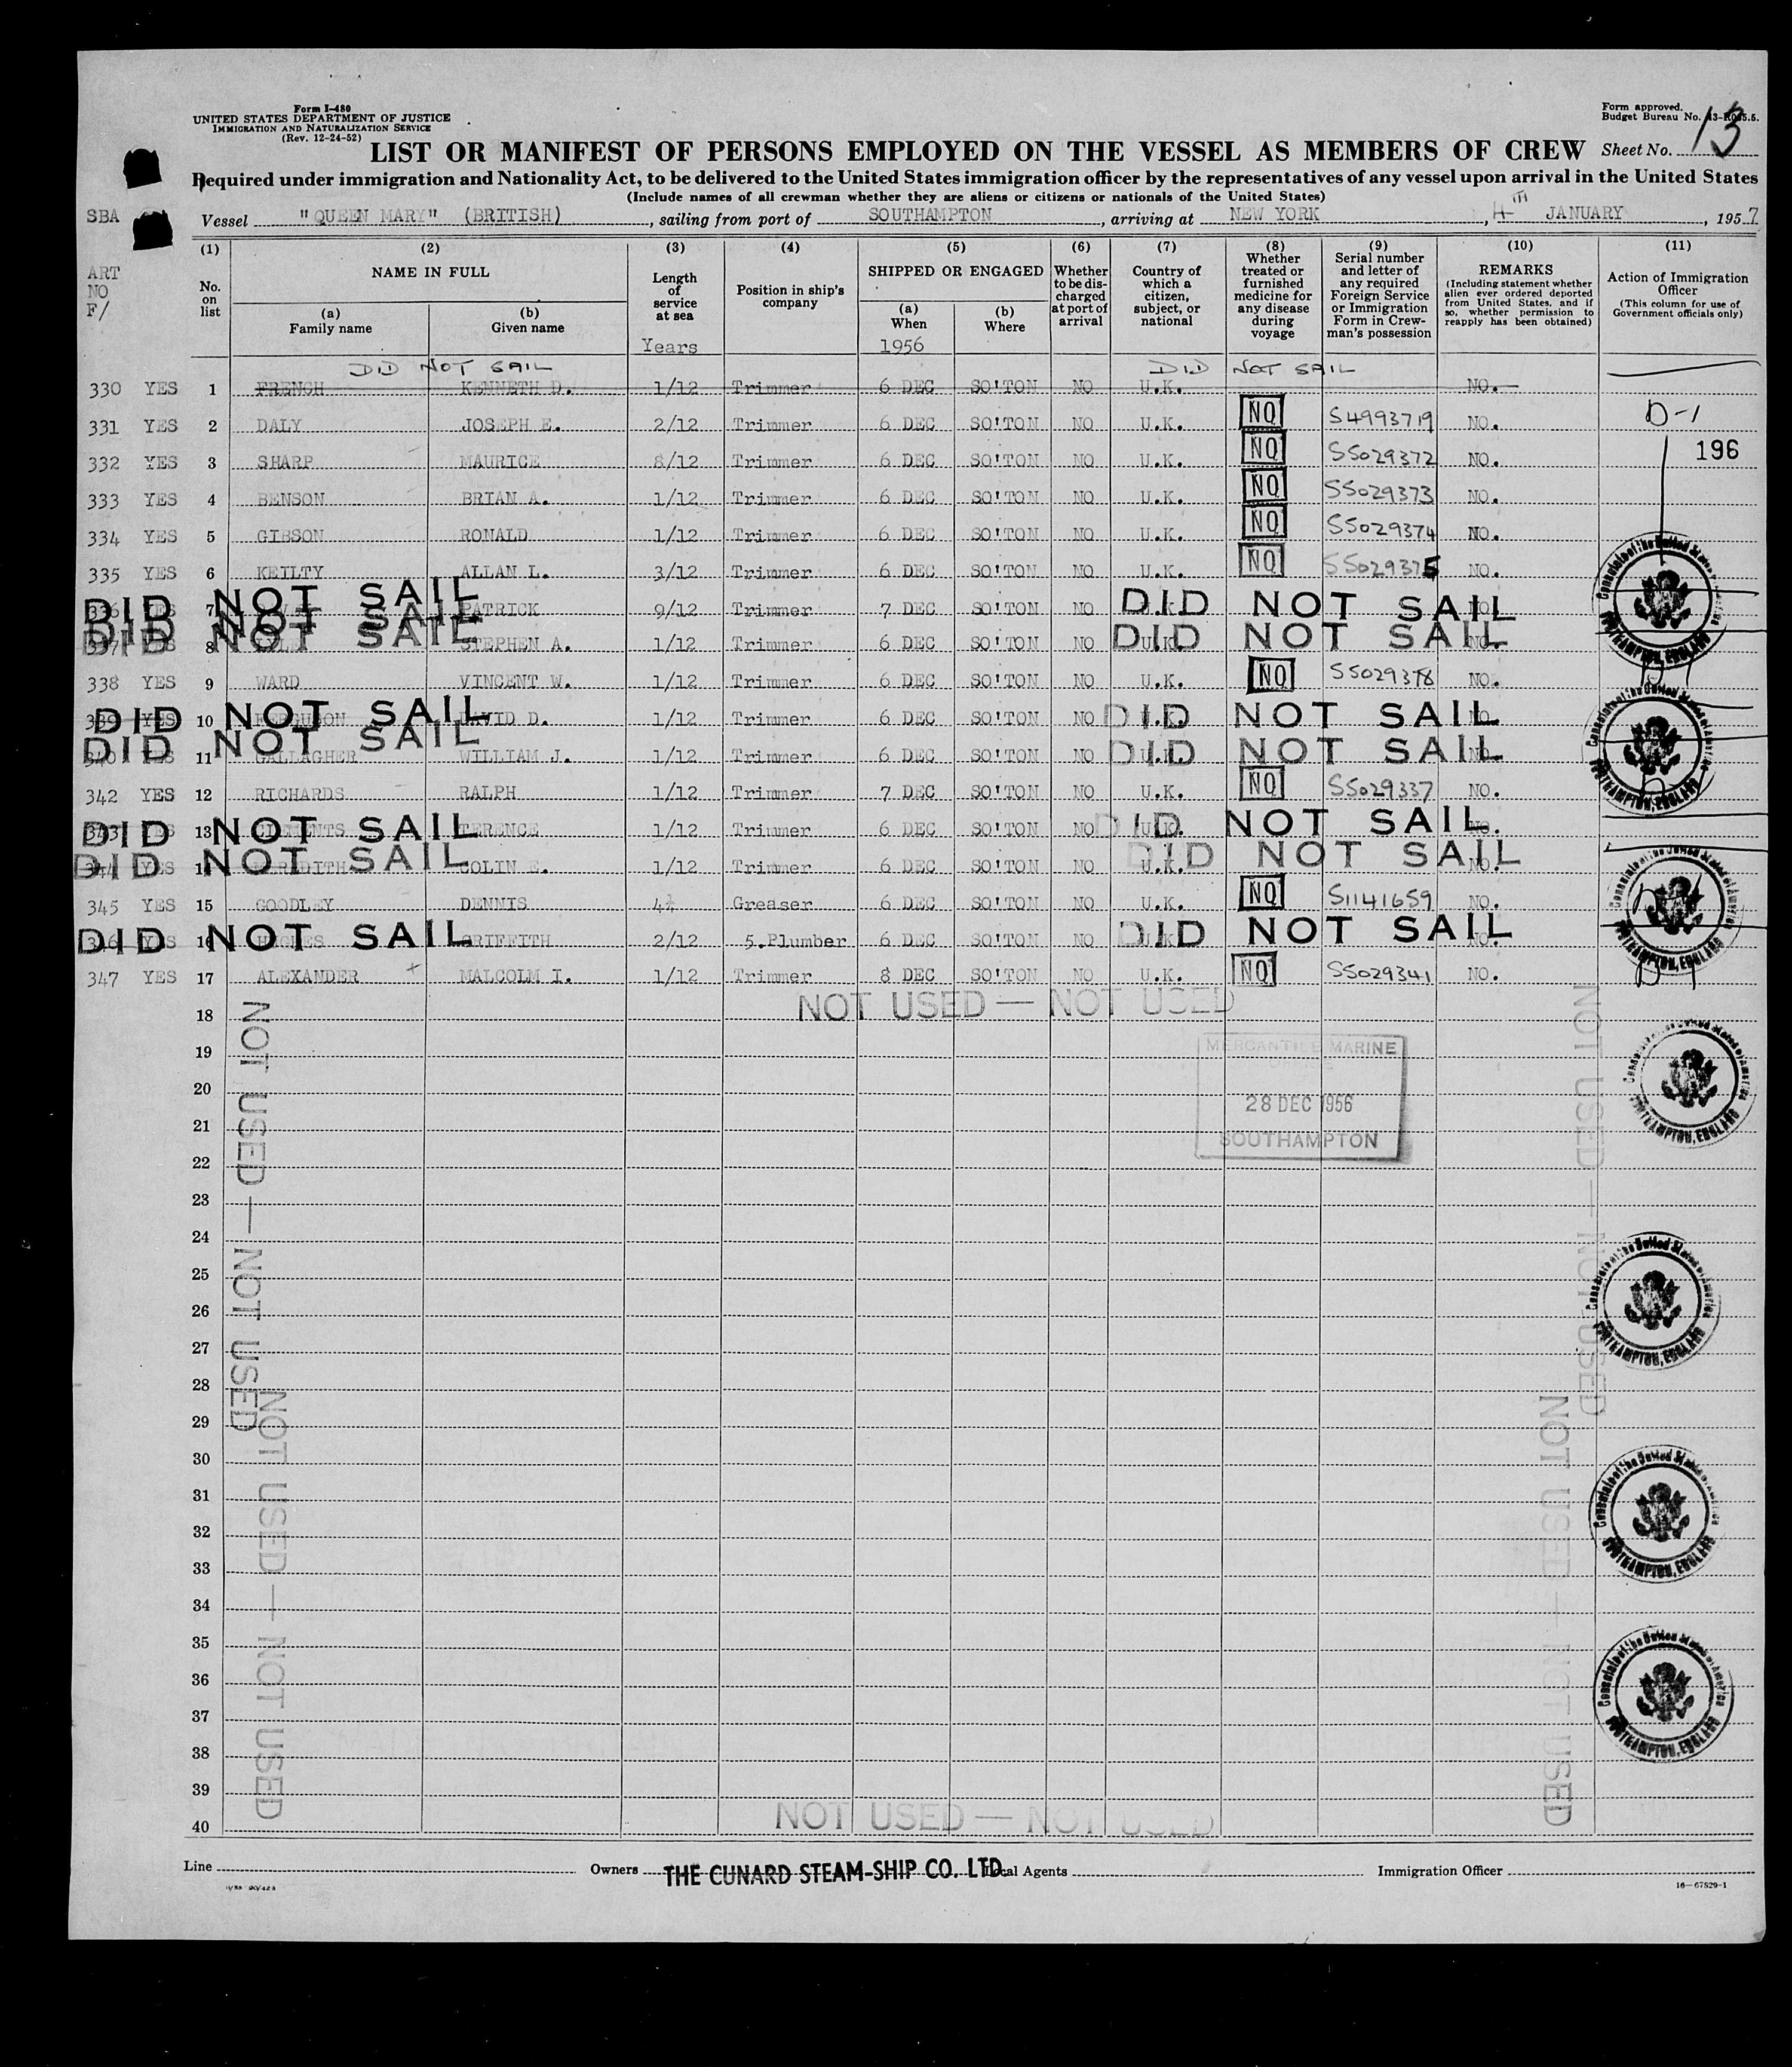 Form I-480
UNITED STATES DEPARTMENT OF JUSTICE
IMMIGRATION AND NATURALIZATION SERVICE
(Rev. 12-24-52)
Form approved.
Budget Bureau No. 43-R065.5.
LIST OR MANIFEST OF PERSONS EMPLOYED ON THE VESSEL AS MEMBERS OF CREW
Sheet No. 13
Required under immigration and Nationality Act, to be delivered to the United States immigration officer by the representatives of any vessel upon arrival in the United States
(Include names of all crewman whether they are aliens or citizens or nationals of the United States)
SBA Vessel "QUEEN MARY" (BRITISH), sailing from port of SOUTHAMPTON, arriving at NEW YORK, 4TH JANUARY, 1957
ART NO F/
(1) No. on list
(2) NAME IN FULL (a) Family name (b) Given name
(3) Length of service at sea Years
(4) Position in ship's company
(5) SHIPPED OR ENGAGED (a) When 1956 (b) Where
(6) Whether to be discharged at port of arrival
(7) Country of which a citizen, subject, or national
(8) Whether treated or furnished medicine for any disease during voyage
(9) Serial number and letter of any required Foreign Service or Immigration Form in Crewman's possession
(10) REMARKS (Including statement whether alien ever ordered deported from United States, and if so, whether permission to reapply has been obtained)
(11) Action of Immigration Officer (This column for use of Government officials only)
DID NOT SAIL DID NOT SAIL
330 YES 1 FRENCH KENNETH D. 1/12 Trimmer 6 DEC SO'TON NO U.K. NO.
331 YES 2 DALY JOSEPH E. 2/12 Trimmer 6 DEC SO'TON NO U.K. NO S4993719 NO. D-1
332 YES 3 SHARP MAURICE 8/12 Trimmer 6 DEC SO'TON NO U.K. NO S5029372 NO. 196
333 YES 4 BENSON BRIAN A. 1/12 Trimmer 6 DEC SO'TON NO U.K. NO S5029373 NO.
334 YES 5 GIBSON RONALD 1/12 Trimmer 6 DEC SO'TON NO U.K. NO S5029374 NO.
335 YES 6 KEILTY ALLAN L. 3/12 Trimmer 6 DEC SO'TON NO U.K. NO S5029375 NO.
336 YES 7 PATRICK 9/12 Trimmer 7 DEC SO'TON NO U.K. NO. DID NOT SAIL DID NOT SAIL
337 YES 8 STEPHEN A. 1/12 Trimmer 6 DEC SO'TON NO U.K. NO. DID NOT SAIL DID NOT SAIL
338 YES 9 WARD VINCENT W. 1/12 Trimmer 6 DEC SO'TON NO U.K. NO S5029378 NO. D-1
339 YES 10 FERGUSON DAVID D. 1/12 Trimmer 6 DEC SO'TON NO U.K. NO. DID NOT SAIL DID NOT SAIL
340 YES 11 GALLAGHER WILLIAM J. 1/12 Trimmer 6 DEC SO'TON NO U.K. NO. DID NOT SAIL DID NOT SAIL
342 YES 12 RICHARDS RALPH 1/12 Trimmer 7 DEC SO'TON NO U.K. NO S5029337 NO. D-1
343 YES 13 CLEMENTS TERENCE 1/12 Trimmer 6 DEC SO'TON NO U.K. NO. DID NOT SAIL DID NOT SAIL
344 YES 14 MEREDITH COLIN E. 1/12 Trimmer 6 DEC SO'TON NO U.K. NO. DID NOT SAIL DID NOT SAIL
345 YES 15 GOODLEY DENNIS Greaser 6 DEC SO'TON NO U.K. NO S1141659 NO. D-1
346 YES 16 GRIFFITH 2/12 5.Plumber 6 DEC SO'TON NO U.K. NO. DID NOT SAIL DID NOT SAIL
347 YES 17 ALEXANDER MALCOLM I. 1/12 Trimmer 8 DEC SO'TON NO U.K. NO S5029341 NO. D-1
NOT USED — NOT USED
18
19
20
21
22
23
24
25
26
27
28
29
30
31
32
33
34
35
36
37
38
39
40
MERCANTILE MARINE
OFFICE
28 DEC 1956
SOUTHAMPTON
NOT USED — NOT USED
NOT USED — NOT USED
NOT USED — NOT USED
NOT USED — NOT USED
NOT USED — NOT USED
Consulate of the United States of America
SOUTHAMPTON, ENGLAND
Consulate of the United States of America
SOUTHAMPTON, ENGLAND
Consulate of the United States of America
SOUTHAMPTON, ENGLAND
Consulate of the United States of America
SOUTHAMPTON, ENGLAND
Consulate of the United States of America
SOUTHAMPTON, ENGLAND
Consulate of the United States of America
SOUTHAMPTON, ENGLAND
Consulate of the United States of America
SOUTHAMPTON, ENGLAND
Line Owners THE CUNARD STEAM-SHIP CO. LTD. Local Agents Immigration Officer
16—67829-1